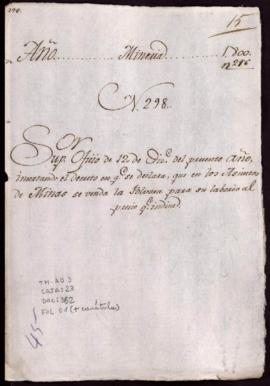 298.
15
Año. Mineria 1800
N. 298.
Sup.or Ofizio de 12 de Dic.e del presente Año,
insertando el decreto en q.e se declara, que en los Asientos
de Minas se venda la Polvora para su laborio al
precio q.e indica.
TM-AD 3
CAJA: 23
DOC: 362
FOL 01 (+ carátula)
45